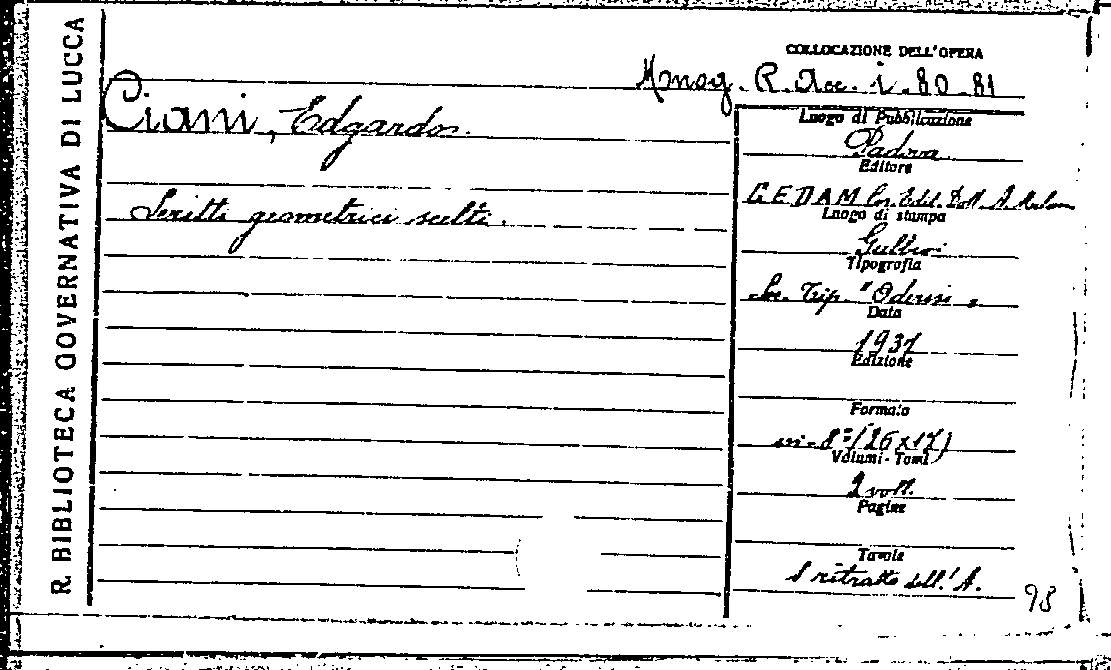 R. BIBLIOTECA GOVERNATIVA DI LUCCA
COLLOCAZIONE DELL'OPERA
Monog. R. Acc. i. 80-81
Ciani, Edgardo.
Scritti geometrici scelti.
Luogo di Pubblicazione
Padova
Editore
CEDAM Edit. Dott. A.
Luogo di stampa
Gubbio
Tipografia
Soc. Tip. "Oderisi"
Data
1937
Edizione
Formato
in-8° (26x17)
Volumi - Tomi
2 voll.
Pagine
Tavole
1 ritratto dell'A.
98